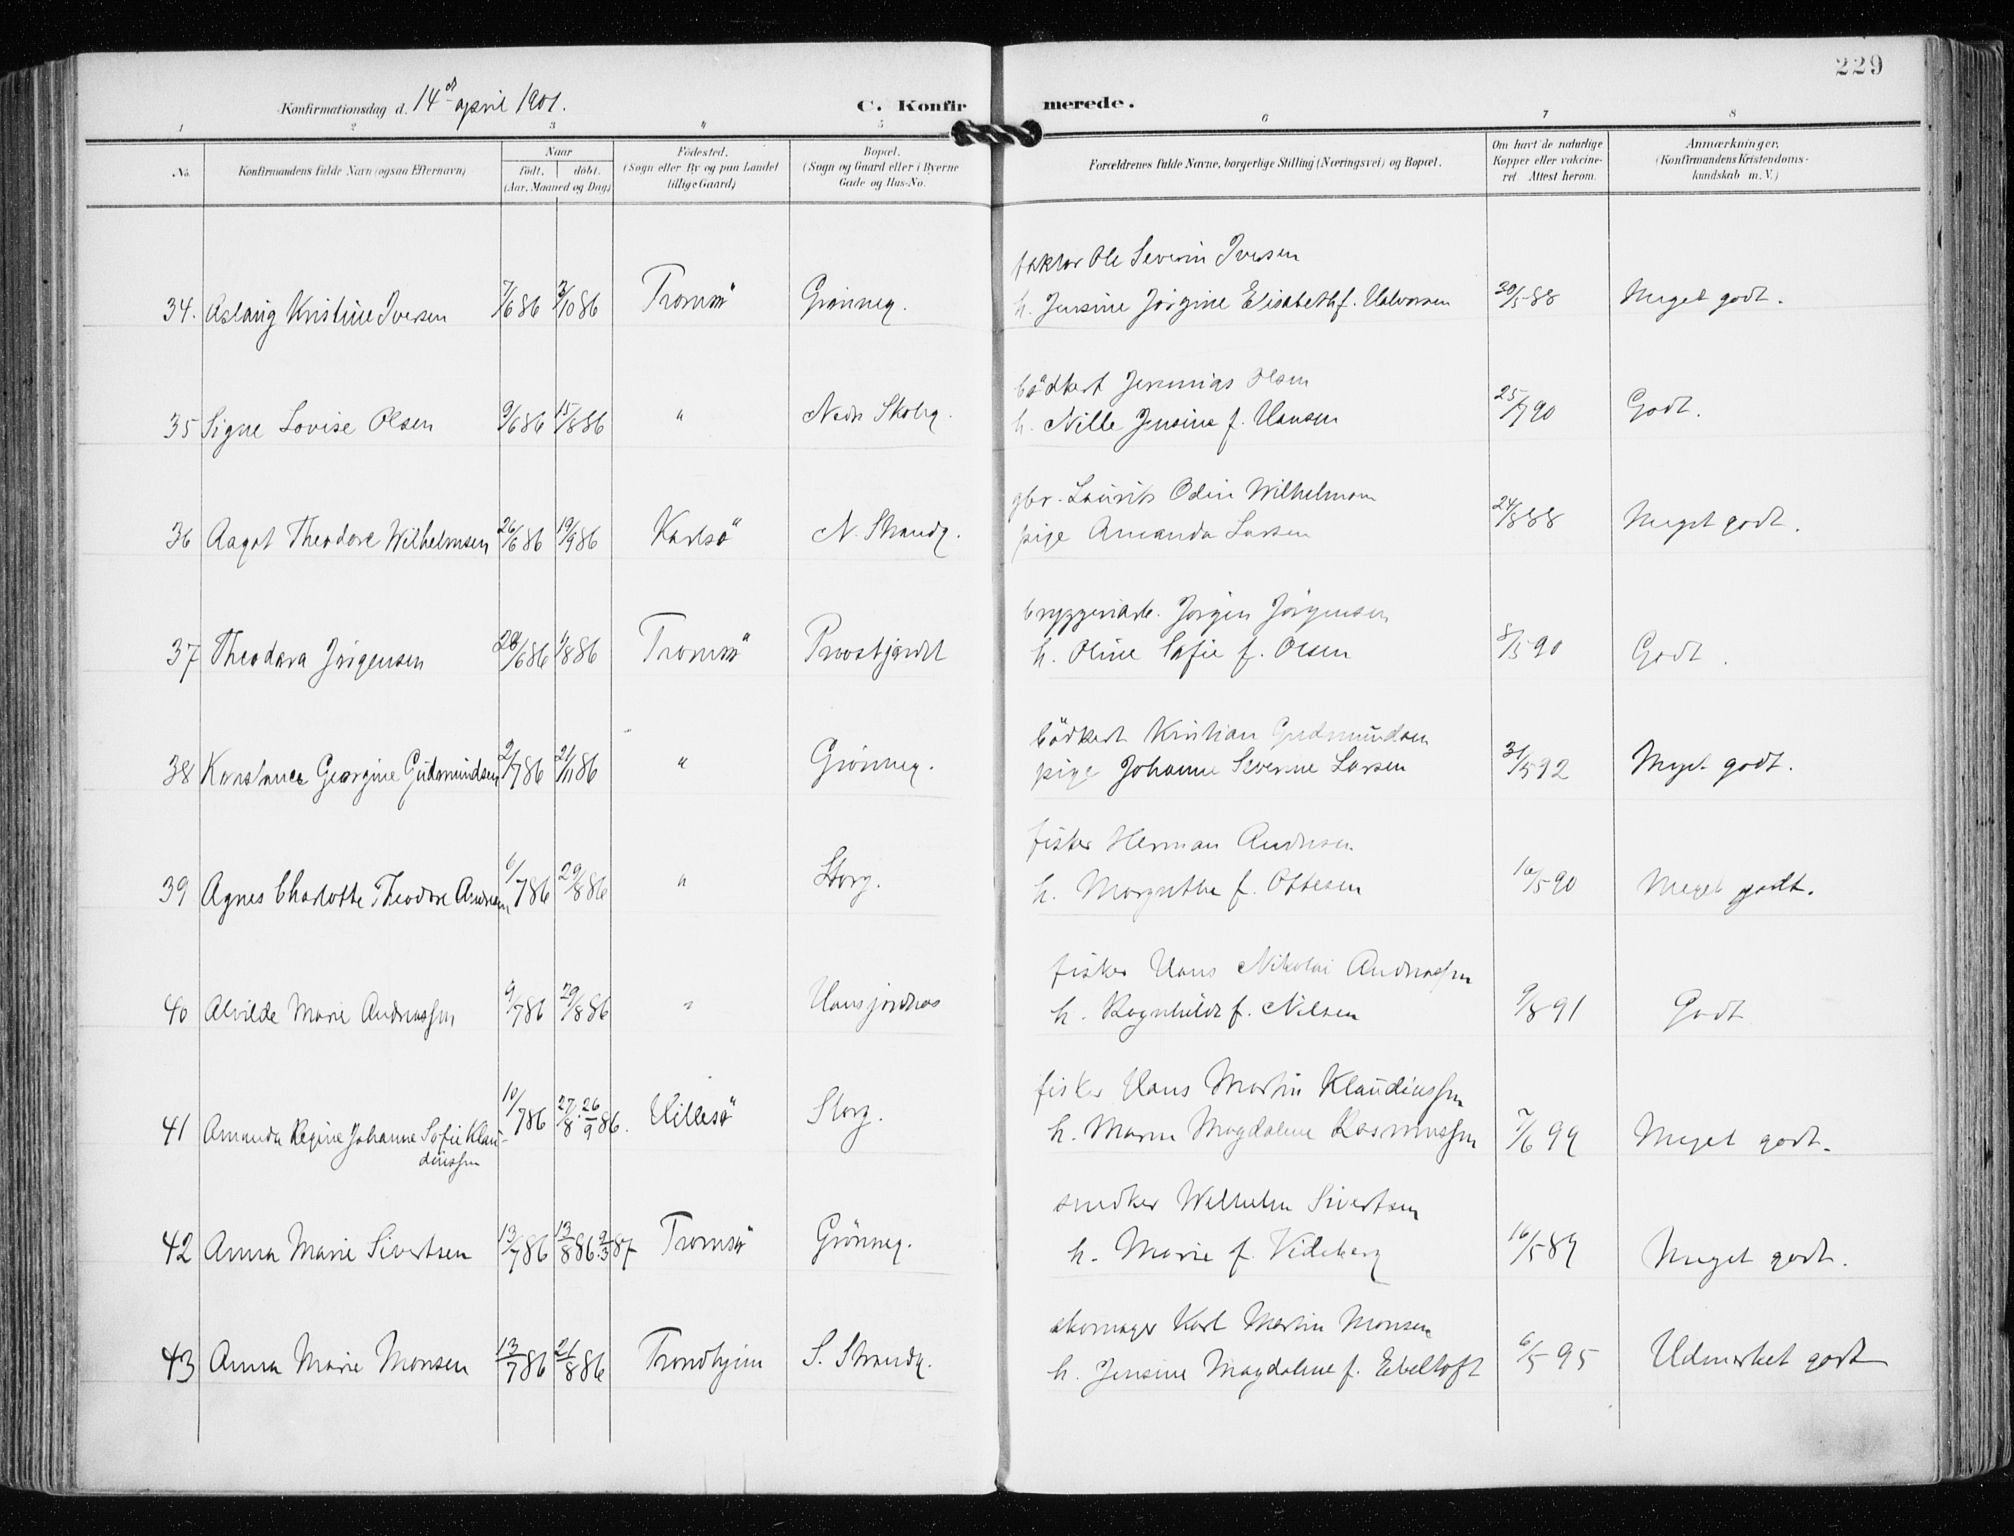 229
Konfirmationsdag d. 14de april 1901.
C. Konfirmerede.
1 2 3 4 5 6 7 8
No. Konfirmandens fulde Navn (ogsaa Efternavn) Naar født, døbt. (Aar, Maaned og Dag) Fødested. (Sogn eller By og paa Landet tillige Gaard) Bopæl. (Sogn og Gaard eller i Byerne Gade og Hus-No. Forældrenes fulde Navne, borgerlige Stilling (Næringsvei) og Bopæl. Om havt de naturlige Kopper eller vakcineret. Attest herom. Anmærkninger. (Konfirmandens Kristendomskundskab m. V.)
faktor Ole Severin Iversen
34. Aslaug Kristine Iversen 7/6 86 3/10 86 Tromsö Grönneg. h. Jensine Jörgine Elisabeth f. Halvorsen 30/5 88 Meget godt.
bödker Jeremias Olsen
35 Signe Lovise Olsen 9/6 86 15/8 86 " Nedr Skoleg. h. Nille Jensine f. Hansen 25/7 90 Godt.
gbr. Laurits Odin Wilhelmsen
36 Aagot Theodore Wilhelmsen 26/6 86 19/9 86 Karlsö N. Strandg. pige Amanda Larsen 24/8 88 Meget godt.
bryggeriarb. Jörgen Jörgensen
37 Theodora Jörgensen 28/6 86 1/8 86 Tromsö Provstjordet h. Oline Sofie f. Olsen 8/5 90 Godt.
bödker Kristian Gudmundsen
38 Konstance Georgine Gudmundsen 2/7 86 21/11 86 " Grönneg. pige Johanne Severine Larsen 31/5 92 Meget godt.
fisker Herman Andresen
39 Agnes Charlotte Theodore Andresen 6/7 86 29/8 86 " Storg. h. Margrethe f. Ottesen 16/5 90 Meget godt.
fisker Hans Nikolai Andreassen
40 Alvilde Marie Andreassen 9/7 86 29/8 86 " Hansjordnes h. Ragnhild f. Nilsen 9/8 91 Godt
fisker Hans Martin Klaudiussen
41 Amanda Regine Johanne Sofie Klaudiussen 10/7 86 27/8. 26/9 86. Hillesö Storg. h. Maren Magdalene Rasmussen 7/6 99 Meget godt.
snedker Wilhelm Sivertsen
42 Anna Marie Sivertsen 13/7 86 13/8 86. 9/3 87 Tromsö Grönneg. h. Marie f. Kileberg 16/5 89 Meget godt.
skomager Karl Martin Monsen
43 Anna Marie Monsen 13/7 86 21/8 86 Trondhjem S. Strandg. h. Jensine Magdalene f. Ebeltoft 6/5 95 Udmerket godt